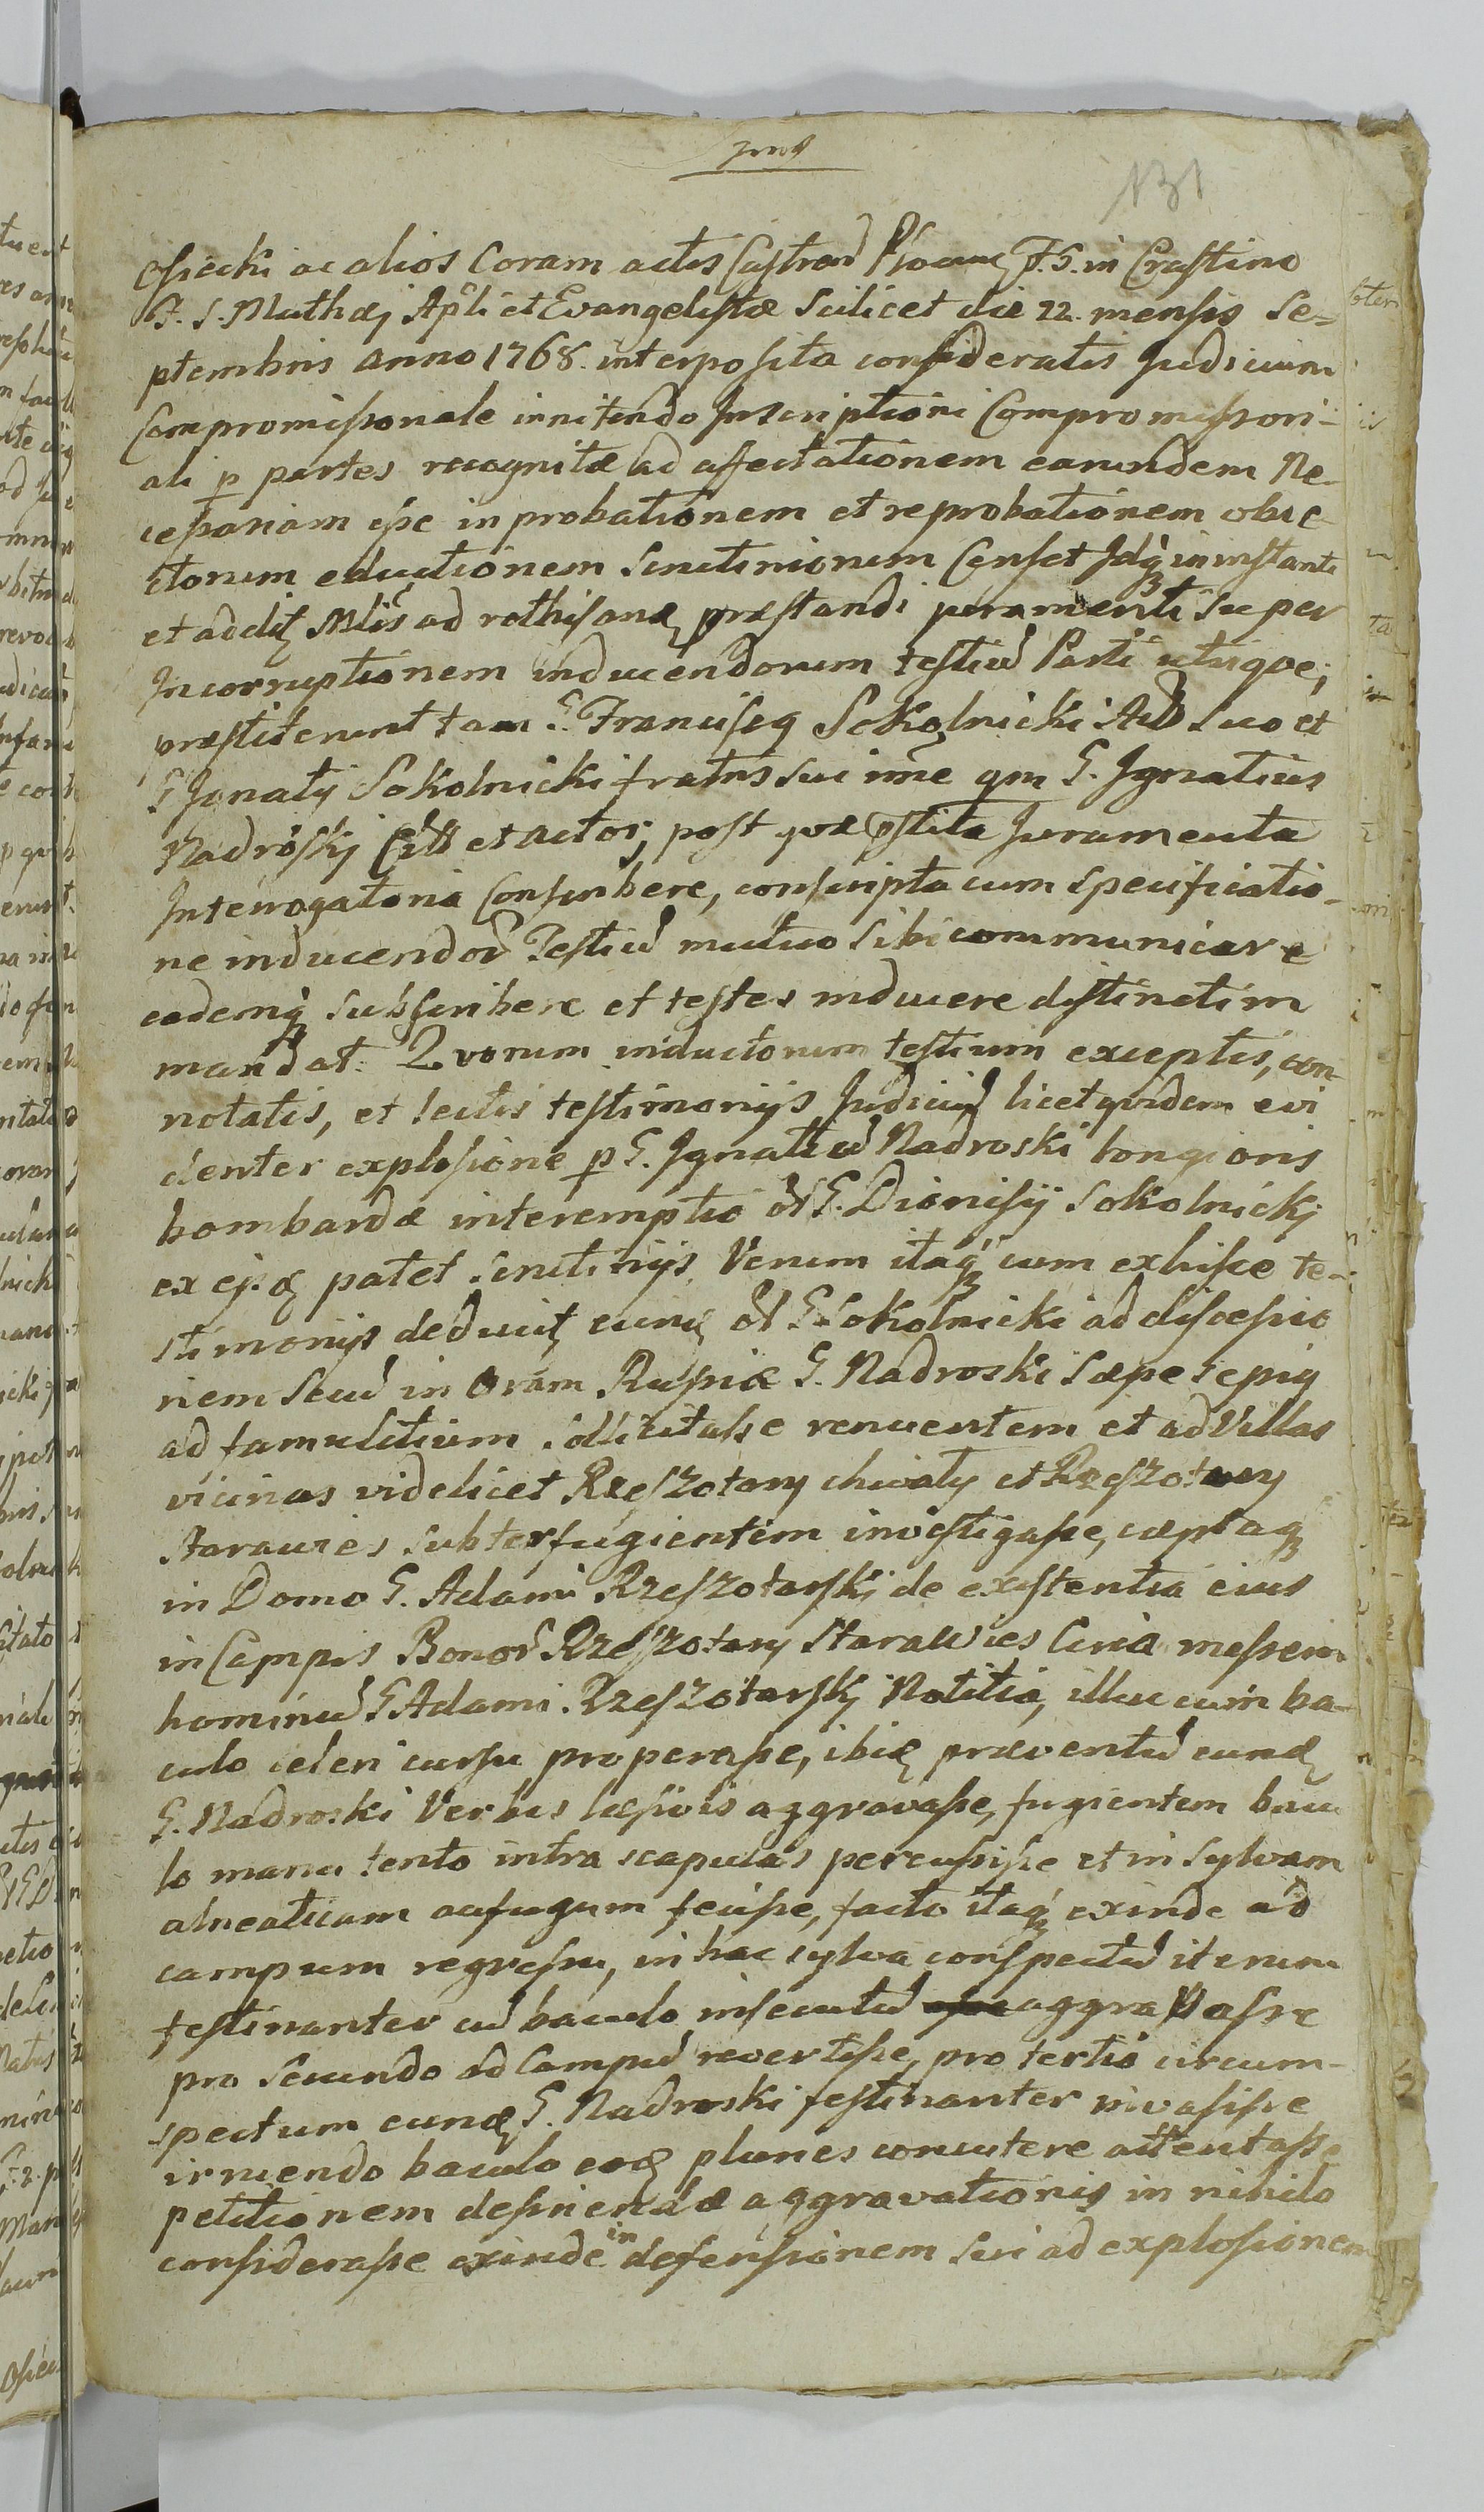 131
Osiecki ac alios Coram actis Castren Plocen F. 5. in Crastino
F. S. Mathæj Apli et Evangelistæ Scilicet die 22. mensis Se=
ptembris anno 1768. interposita consideratis Judicium
Compromissionale innitendo Inscriptioni Compromissori-
ali p partes recognitæ ad affectationem earundem Ne-
cessariam esse in probationem et reprobationem obie-
ctorum eductionem Scrutiniorum Censet Idq in instanti
et addit Mlis ad rothisanæ præstandi juramenti Super
Incorruptionem inducendorum testiu Parti utrique;
præstiterunt tam G. Franciscq Sokolnicki suo et
G Ignatij Sokolnicki fratris sui nne qm G. Ignatius
Nadroskj et actor, post quæ pstita Juramenta
Interrogatoria Conscribere, conscripta cum Specificatio-
ne inducendor Testiu mutuo Sibi communicare
eademq Subscribere et testes inducere distinctim
mandat: Quorum inductorum testium exceptis, con-
notatis, et lectis testimonijs Judiciu licet quidem evi
denter explosione p G. Ignatiu Nadroski longioris
bombardæ interemptio ol G. Dionisij Sokolnickj
ex ejs patet Scrutinijs, Verum itaq cum exhisce te-
stimonijs deducit, eund ol G Sokolnicki ad discessio
nem secu in Oram Russiæ G. Nadroski Sæpe sepiq
ad famulitium sollicitasse renuentem et ad Villas
vicinas videlicet Rzeszotary chwaly et Rzeszotary
Starawies subterfugientem investigasse, cæptaq
in Domo G. Adami Rzeszotarskj de existentia eius
in Campis Bonor Rzeszotary Starawies Circa messem
hominu G Adami Rzeszotarskj Notitia, illuc cum ba-
culo celeri cursu properasse, ibiq præventu eund
G. Nadroski Verbis læsivis aggravasse, fugientem bacu
lo manu tento intra scapulas percussisse et in sylvam
alneaticam aufugum fecisse, facto itaq exinde ad
campum regressu, in hac sylva conspectu iterum
festinanter cu baculo insecutu aggravasse
pro Secundo ad Campu revertisse, pro tertio circum-
spectum eund G. Nadroski festinanter invasisse
irruendo baculo eod plunes concutere attentasse
petitionem desinendæ aggravationis in nihilo
considerasse exinde in defensionem Sui ad explosionem